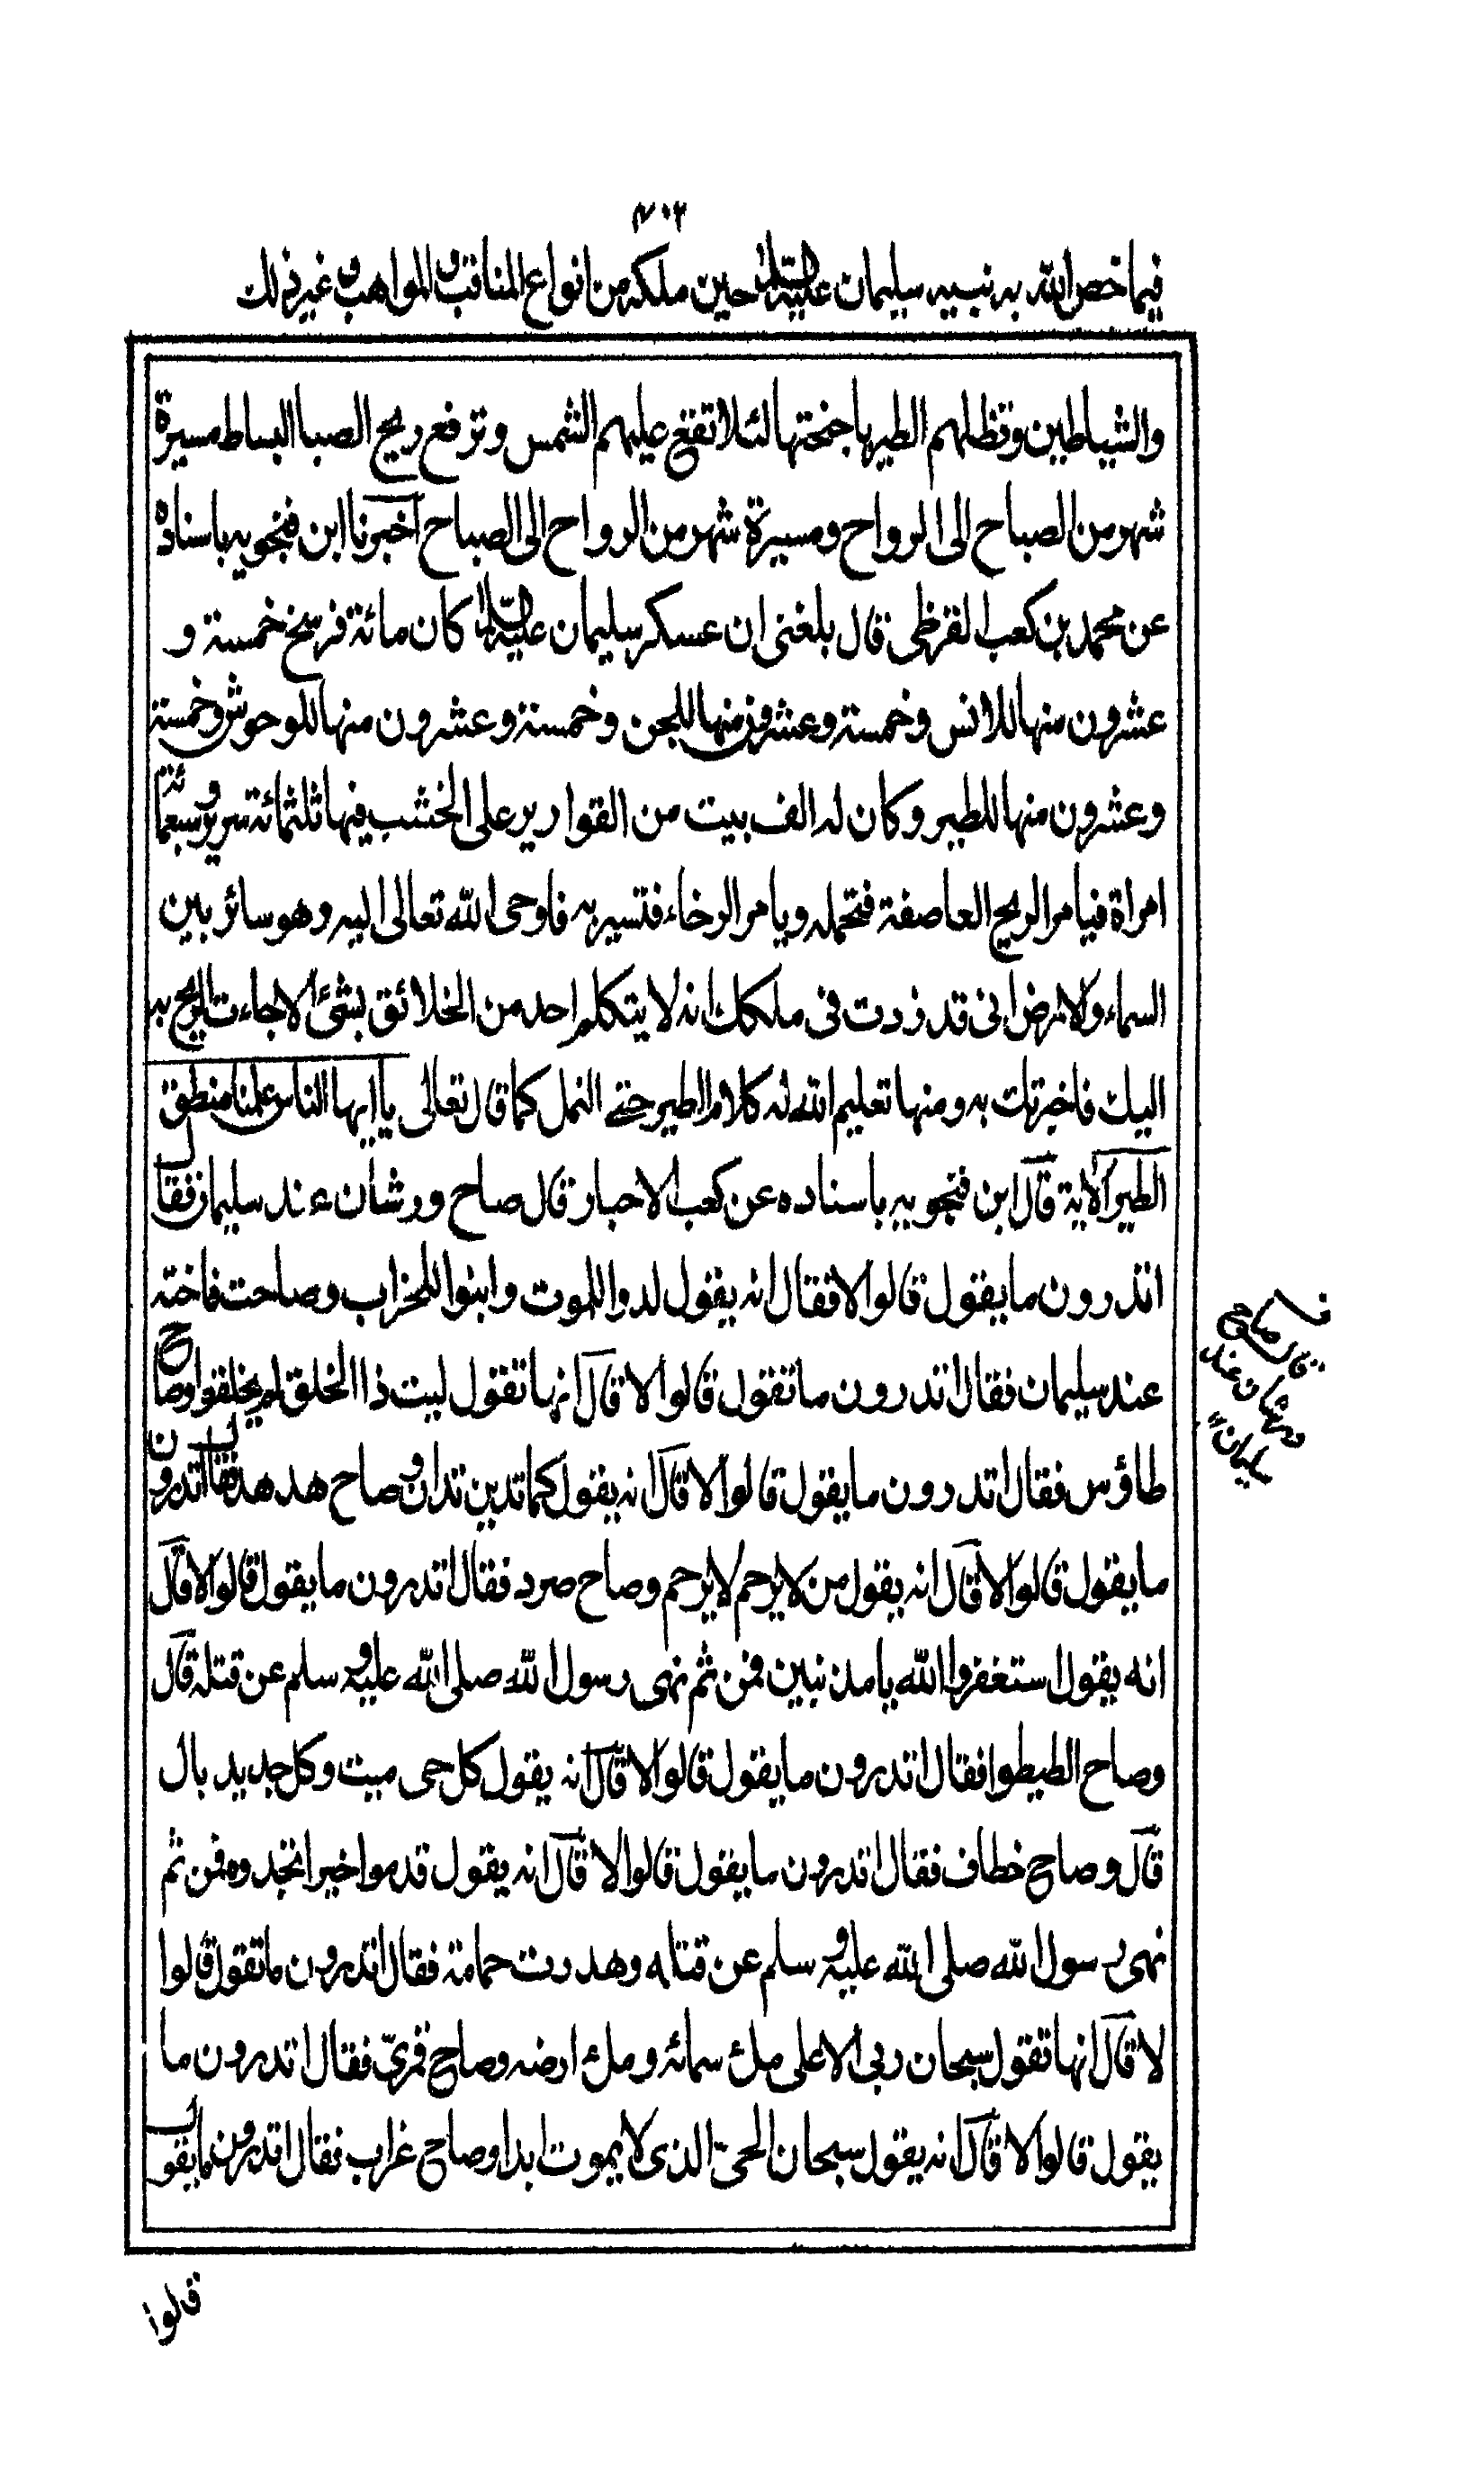 ٤٠٣
فيما خص الله به نبيه سليمان عليه السلام حين ملكه من انواع المناقب و المواهب و غير ذلك
والشياطين وتظلهم الطير باجنحتها لئلا تقع عليهم الشمس وترفع ريح الصبا البساط مسيرة
شهر من الصباح الى الرواح ومسيرة شهر من الرواح الى الصباح اخبرنا ابن فنجويه باسناده
عن محمد بن كعب القرظى قال بلغنى ان عسكر سليمان عليه السلام كان مائة فرسخ خمسة و
عشرون منها للانس وخمسة وعشرون منها للجن وخمسة وعشرون منها للوحوش وخمسة
وعشرون منها للطير وكان له الف بيت من القوارير على الخشب فيها ثلثمائة سرير و سبعمائة
امراة فيامر الريح العاصفة فتحمله ويامر الرخاء فتسير به فاوحى الله تعالى اليه وهو سائر بين
السماء والارض انى قد زدت فى ملكك انه لا يتكلم احد من الخلائق بشئ الا جاءت الريح به
اليك فاخبرتك به ومنها تعليم الله له كلام الطير حتى النمل كما قال تعالى يا ايها الناس علمنا منطق
الطير الاية قال ابن فنجويه باسناده عن كعب الاحبار قال صاح ورشان عند سليمان فقال
اتدرون ما يقول قالوا لا فقال انه يقول لدوا للموت وابنوا للخراب وصاحت فاختة
عند سليمان فقال اتدرون ما تقول قالوا لا قال انها تقول ليت ذا الخلق لم يخلقوا وصاح
طاؤس فقال اتدرون ما يقول قالوا لا قال انه يقول كما تدين تدان و صاح هدهد فقال اتدرون
ما يقول قالوا لا قال انه يقول من لا يرحم لا يرحم وصاح صرد فقال اتدرون ما يقول قالوا لا قال
انه يقول استغفروا الله يا مذنبين فمن ثم نهى رسول الله صلى الله عليه و سلم عن قتله قال
وصاح الطيطوا فقال اتدرون ما يقول قالوا لا قال انه يقول كل حى ميت وكل جديد بال
قال وصاح خطاف فقال اتدرون ما يقول قالوا لا قال انه يقول قدموا خيرا تجدوه فمن ثم
نهى رسول الله صلى الله عليه و سلم عن قتله وهدرت حمامة فقال اتدرون ما تقول قالوا
لا قال انها تقول سبحان ربى الاعلى ملئ سمائه وملئ ارضه وصاح قمرىّ فقال اتدرون ما
يقول قالوا لا قال انه يقول سبحان الحىّ الذى لا يموت ابدا وصاح غراب فقال اتدرون ما يقول
ف
قال صاح
ورشان عند
سليمان
قالوا